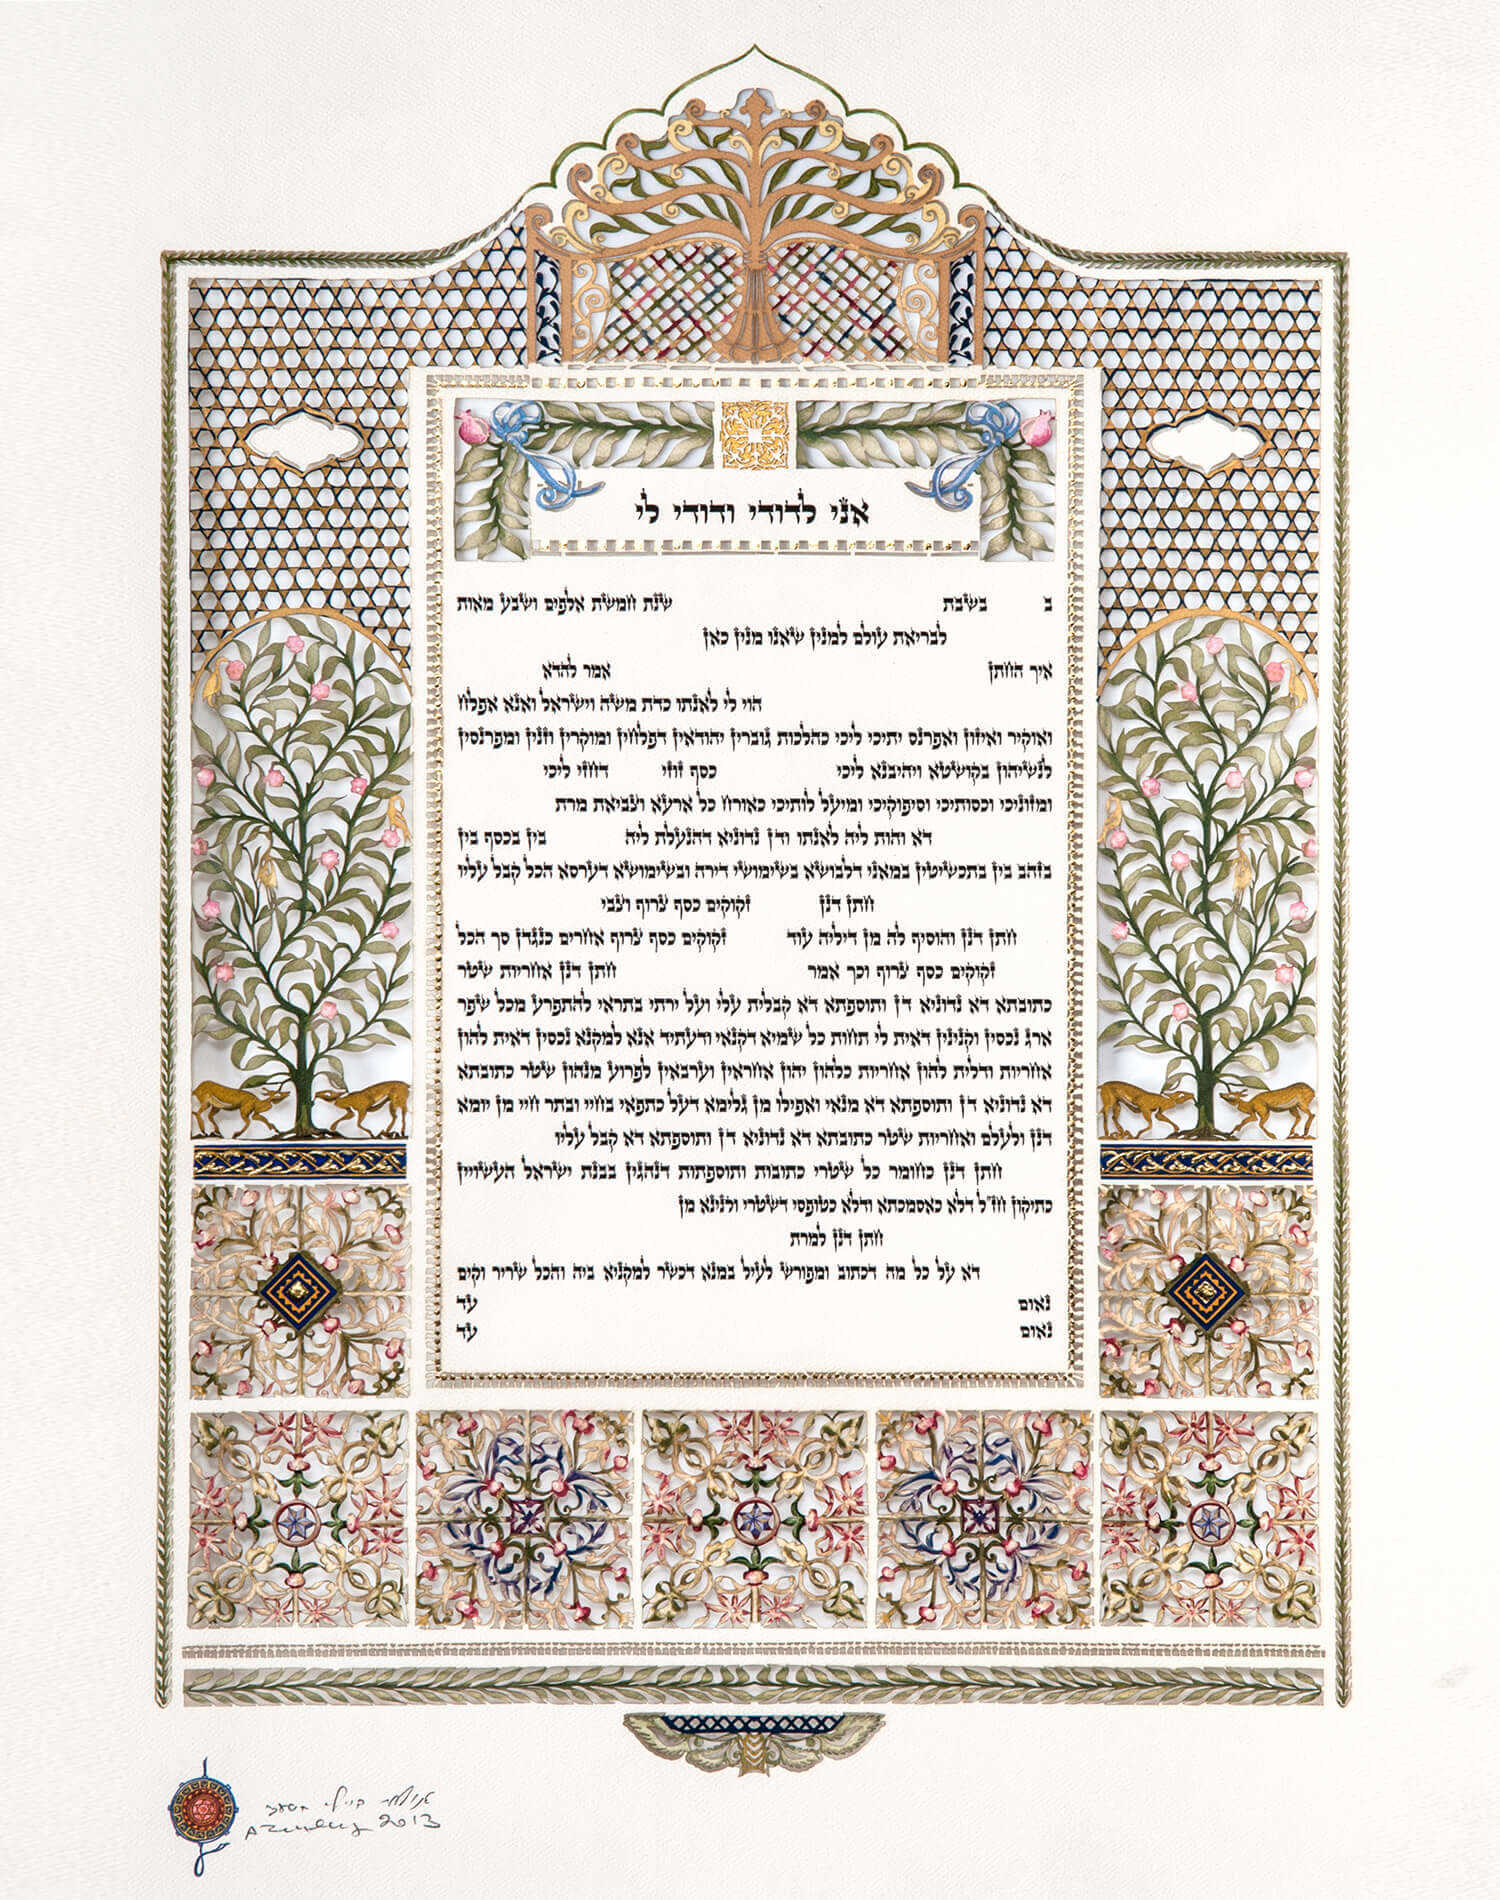 אני לדודי ודודי לי
ב בשבת שנת חמשת אלפים ושבע מאות
לבריאת עולם למנין שאנו מנין כאן
איך החתן אמר להדא
הוי לי לאנתו כדת משה וישראל ואנא אפלח
ואוקיר ואיזון ואפרנס יתיכי ליכי כהלכות גוברין יהודאין דפלחין ומוקרין וזנין ומפרנסין
לנשיהון בקושטא ויהיבנא ליכי כסף זוזי דחזי ליכי
ומזוניכי וכסותיכי וסיפוקיכי ומיעל לותיכי כאורח כל ארעא וצביאת מרת
דא והות ליה לאנתו ודן נדוניא דהנעלת ליה בין בכסף בין
בזהב בין בתכשיטין במאני דלבושא בשימושי דירה ובשימושא דערסא הכל קבל עליו
חתן דנן זקוקים כסף צרוף וצבי
חתן דנן והוסיף לה מן דיליה עוד זקוקים כסף צרוף אחרים כנגדן סך הכל
זקוקים כסף צרוף וכך אמר חתן דנן אחריות שטר
כתובתא דא נדוניא דן ותוספתא דא קבלית עלי ועל ירתי בתראי להתפרע מכל שפר
ארג נכסין וקנינין דאית לי תחות כל שמיא דקנאי ודעתיד אנא למקנא נכסין דאית להון
אחריות ודלית להון אחריות כלהון יהון אחראין וערבאין לפרוע מנהון שטר כתובתא
דא נדוניא דן ותוספתא דא מנאי ואפילו מן גלימא דעל כתפאי בחיי ובתר חיי מן יומא
דנן ולעלם ואחריות שטר כתובתא דא נדוניא דן ותוספתא דא קבל עליו
חתן דנן כחומר כל שטרי כתובות ותוספתות דנהגין בבנת ישראל העשויין
כתיקון חז"ל דלא כאסמכתא ודלא כטופסי דשטרי וקנינא מן
חתן דנן למרת
דא על כל מה דכתוב ומפורש לעיל במנא דכשר למקניא ביה והכל שריר וקים
נאום עד
נאום עד
2013